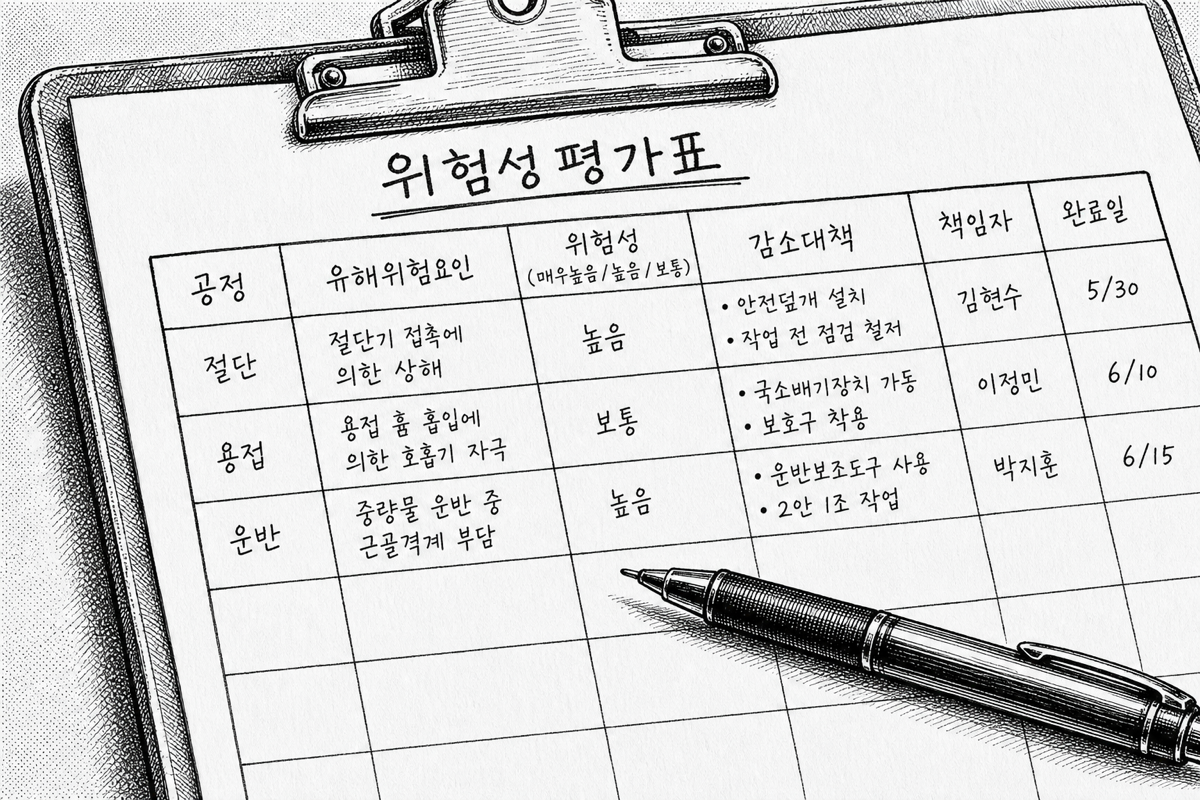 위험성 평가표
공정 유해위험요인 위험성 (매우높음/높음/보통) 감소대책 책임자 완료일
절단 절단기 접촉에 의한 상해 높음 • 안전덮개 설치 • 작업 전 점검 철저 김현수 5/30
용접 용접 흄 흡입에 의한 호흡기 자극 보통 • 국소배기장치 가동 • 보호구 착용 이정민 6/10
운반 중량물 운반 중 근골격계 부담 높음 • 운반보조도구 사용 • 2안 1조 작업 박지훈 6/15